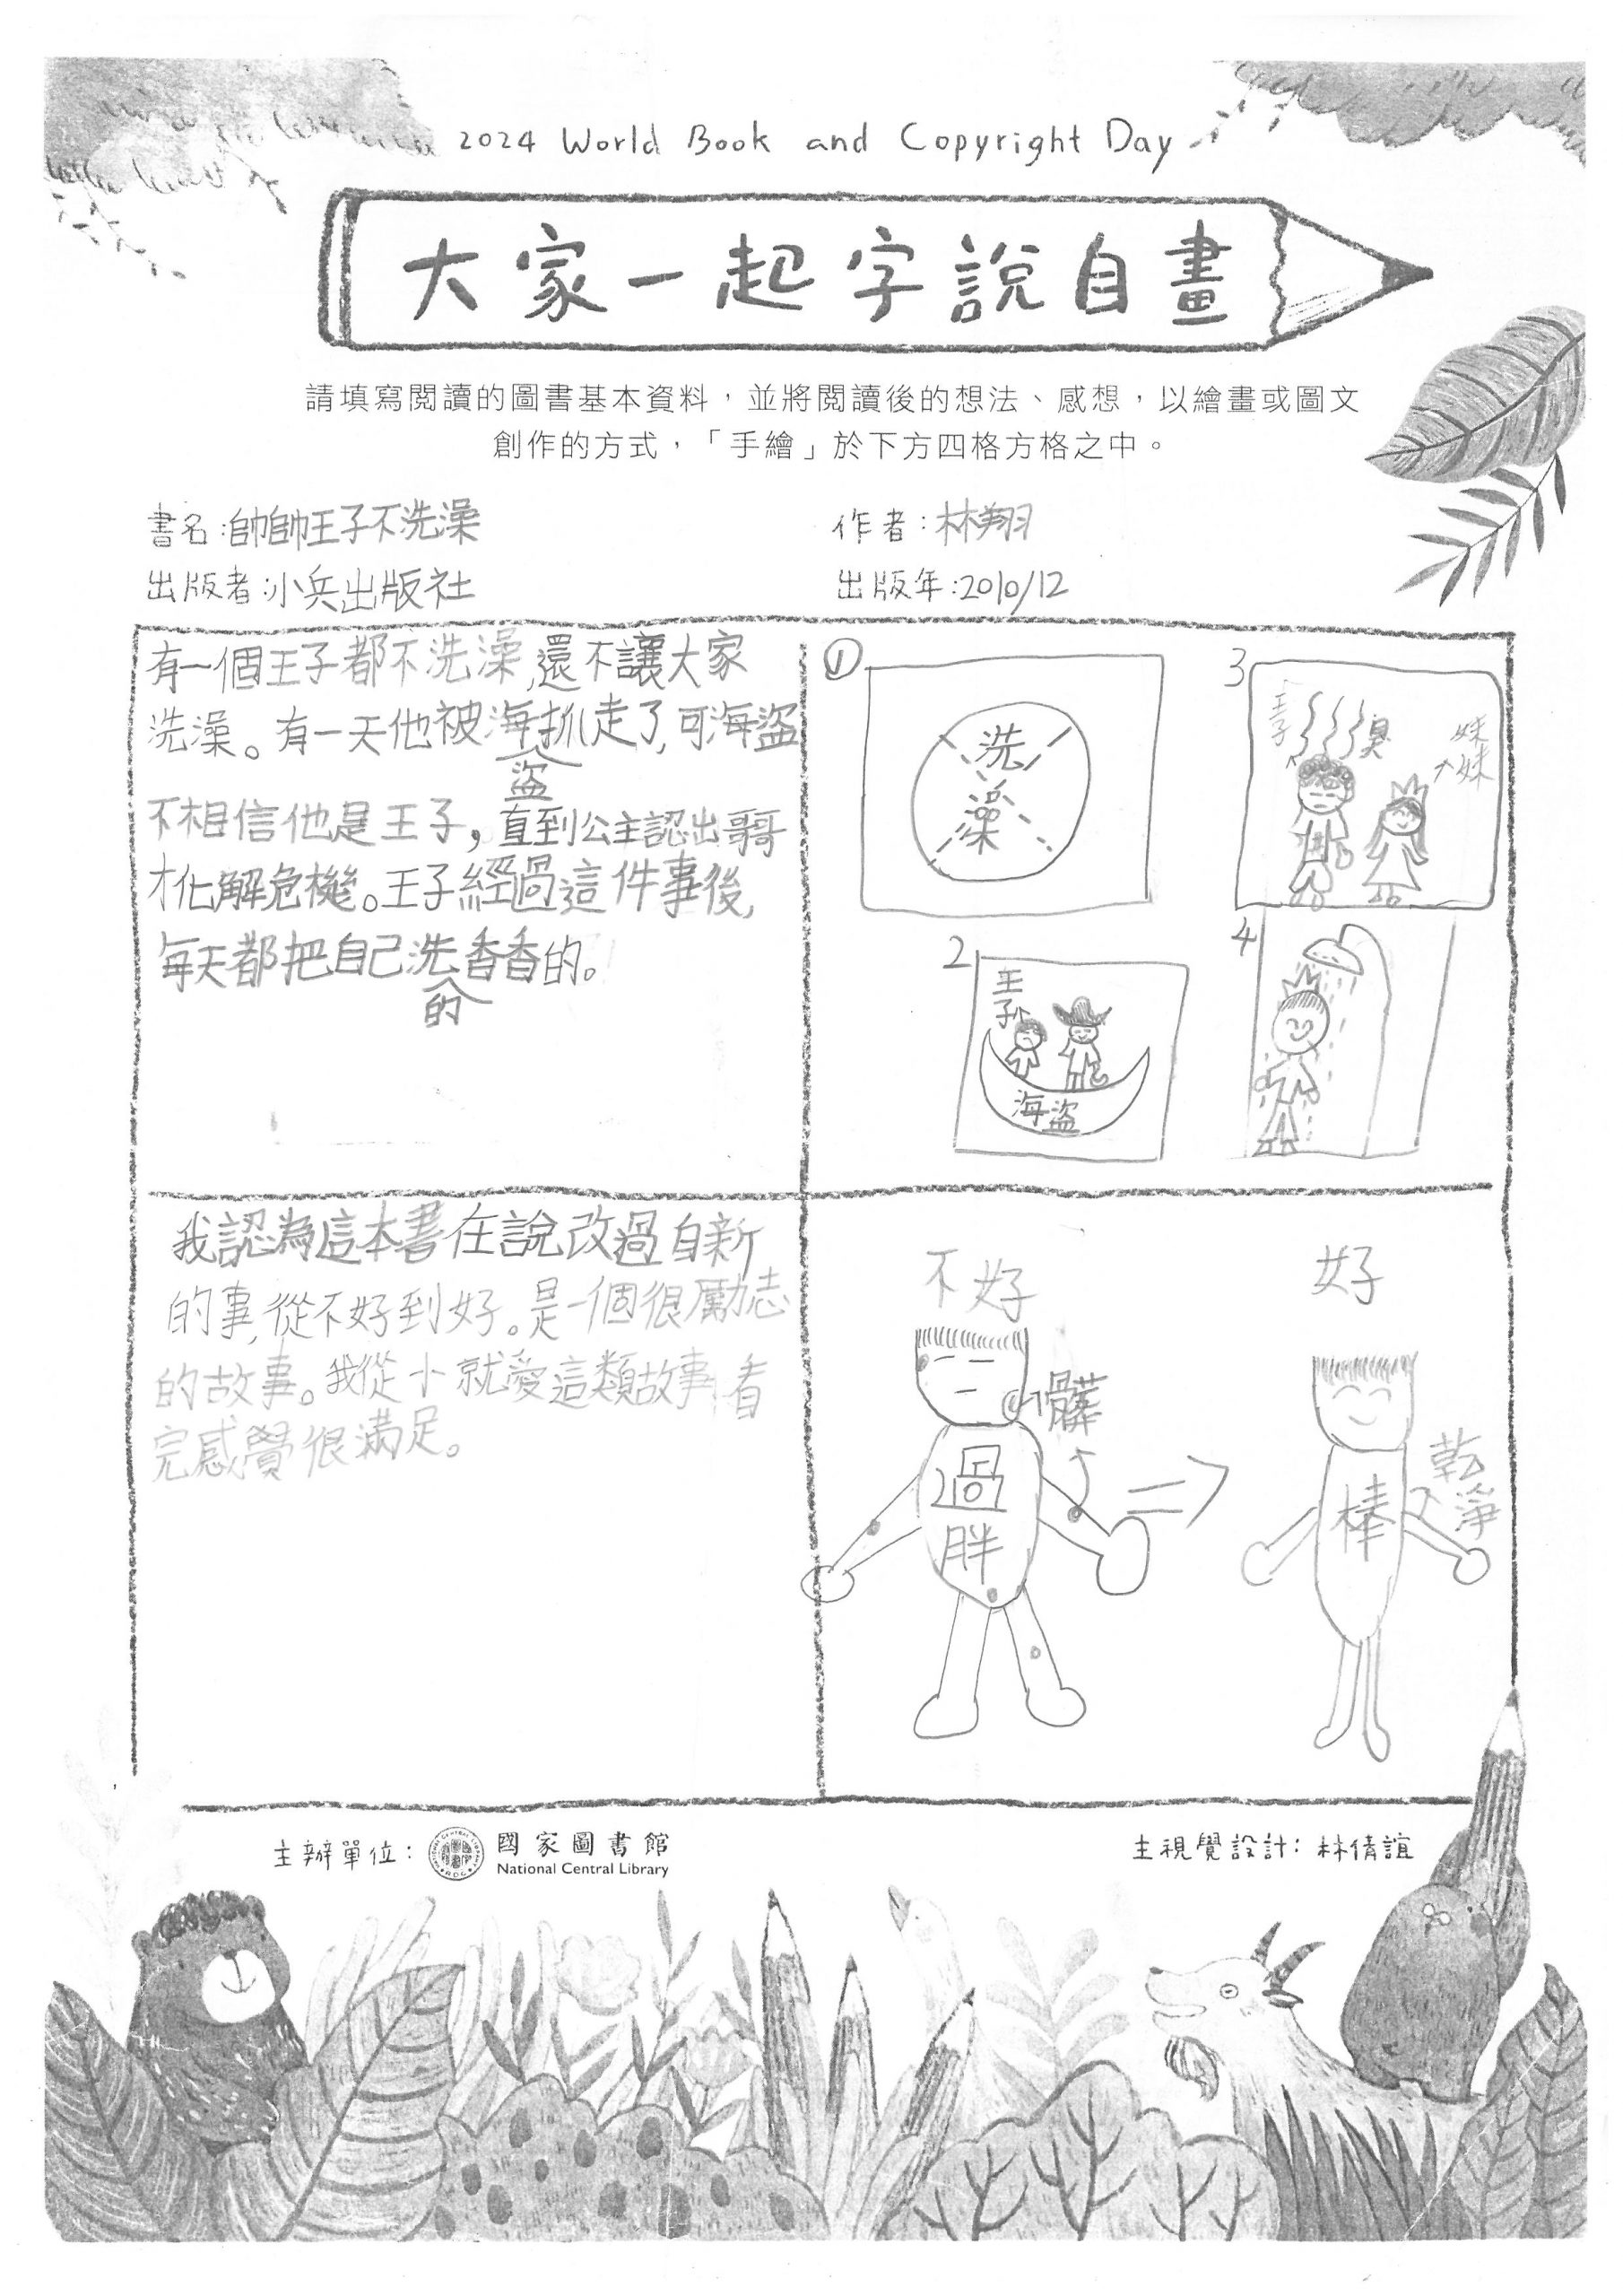 2024 World Book and Copyright Day
大家一起字說自畫
請填寫閱讀的圖書基本資料，並將閱讀後的想法、感想，以繪畫或圖文
創作的方式，「手繪」於下方四格方格之中。
書名：帥帥王子不洗澡
作者：林翔
出版者：小兵出版社
出版年：2010/12
有一個王子都不洗澡，還不讓大家
洗澡。有一天他被海盜抓走了，可海盜
不相信他是王子，直到公主認出哥哥
才化解危機。王子經過這件事後，
每天都把自己洗的香香的。
①
洗
澡
2
王子
海盜
3
王子
臭
妹妹
4
我認為這本書在說改過自新
的事，從不好到好。是一個很勵志
的故事。我從小就愛這類故事，看
完感覺很滿足。
不好
髒
過
胖
好
乾淨
棒
主辦單位：
國家圖書館
National Central Library
主視覺設計：林倩誼